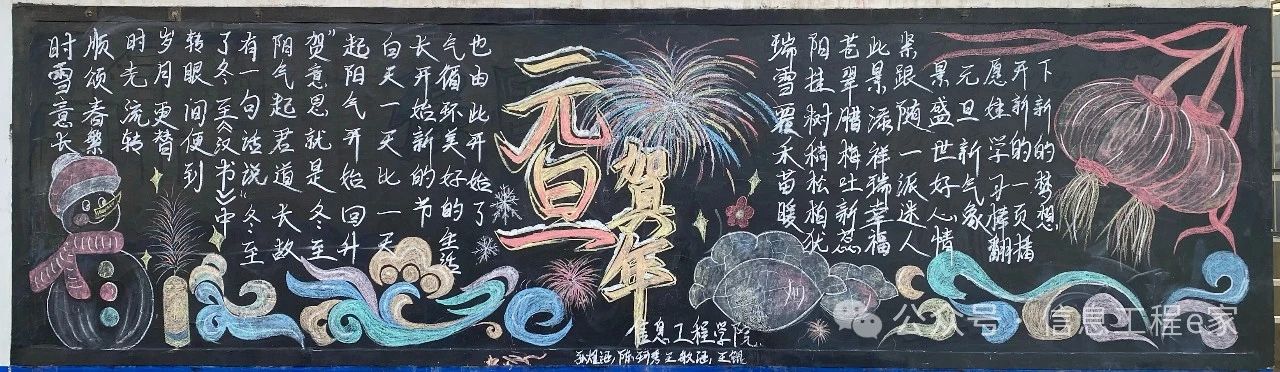 时雪意长
顺颂春繁
时光流转
岁月更替
转眼间便到
了冬至《汉书》中
有一句话说“冬至
阳气起君道长故
贺”意思就是冬至
起阳气开始回升
白天一天比一天
长开始新的节
气循环美好的生活
也由此开始了
元旦
贺年
瑞雪覆禾苗暖
阳挂树梢松柏犹
苍翠腊梅吐新蕊
此景添祥瑞幸福
紧跟随一派迷人
景盛世好人情
元旦新气象
愿娃学习棒翻
开新的一页播
下新的梦想
信息工程学院
公众号 信息工程e家